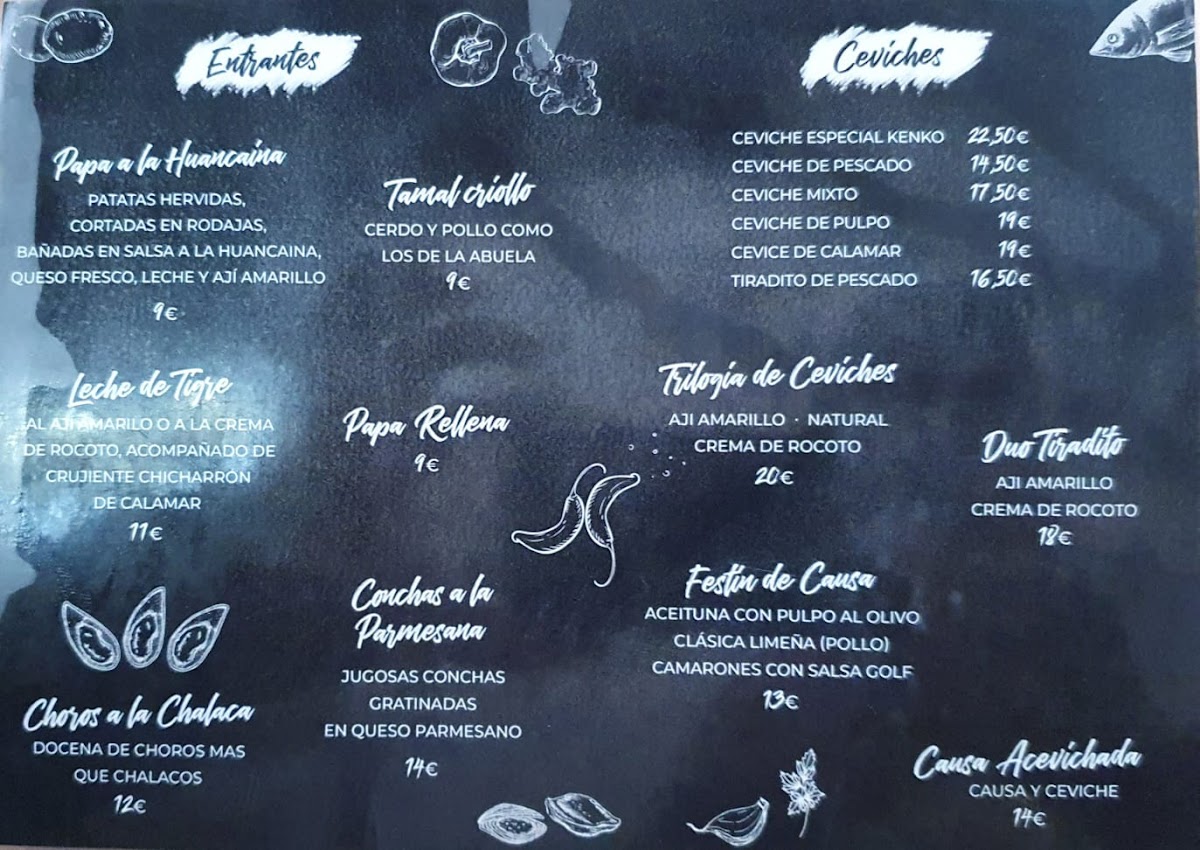 Entrantes
Papa a la Huancaína
PATATAS HERVIDAS,
CORTADAS EN RODAJAS,
BAÑADAS EN SALSA A LA HUANCAINA,
QUESO FRESCO, LECHE Y AJÍ AMARILLO
9€
Tamal criollo
CERDO Y POLLO COMO
LOS DE LA ABUELA
9€
Leche de Tigre
AL AJI AMARILO O A LA CREMA
DE ROCOTO, ACOMPAÑADO DE
CRUJIENTE CHICHARRÓN
DE CALAMAR
11€
Papa Rellena
9€
Choros a la Chalaca
DOCENA DE CHOROS MAS
QUE CHALACOS
12€
Conchas a la
Parmesana
JUGOSAS CONCHAS
GRATINADAS
EN QUESO PARMESANO
14€
Ceviches
CEVICHE ESPECIAL KENKO 22,50€
CEVICHE DE PESCADO 14,50€
CEVICHE MIXTO 17,50€
CEVICHE DE PULPO 19€
CEVICE DE CALAMAR 19€
TIRADITO DE PESCADO 16,50€
Trilogía de Ceviches
AJI AMARILLO · NATURAL
CREMA DE ROCOTO
20€
Duo Tiradito
AJI AMARILLO
CREMA DE ROCOTO
18€
Festín de Causa
ACEITUNA CON PULPO AL OLIVO
CLÁSICA LIMEÑA (POLLO)
CAMARONES CON SALSA GOLF
13€
Causa Acevichada
CAUSA Y CEVICHE
14€